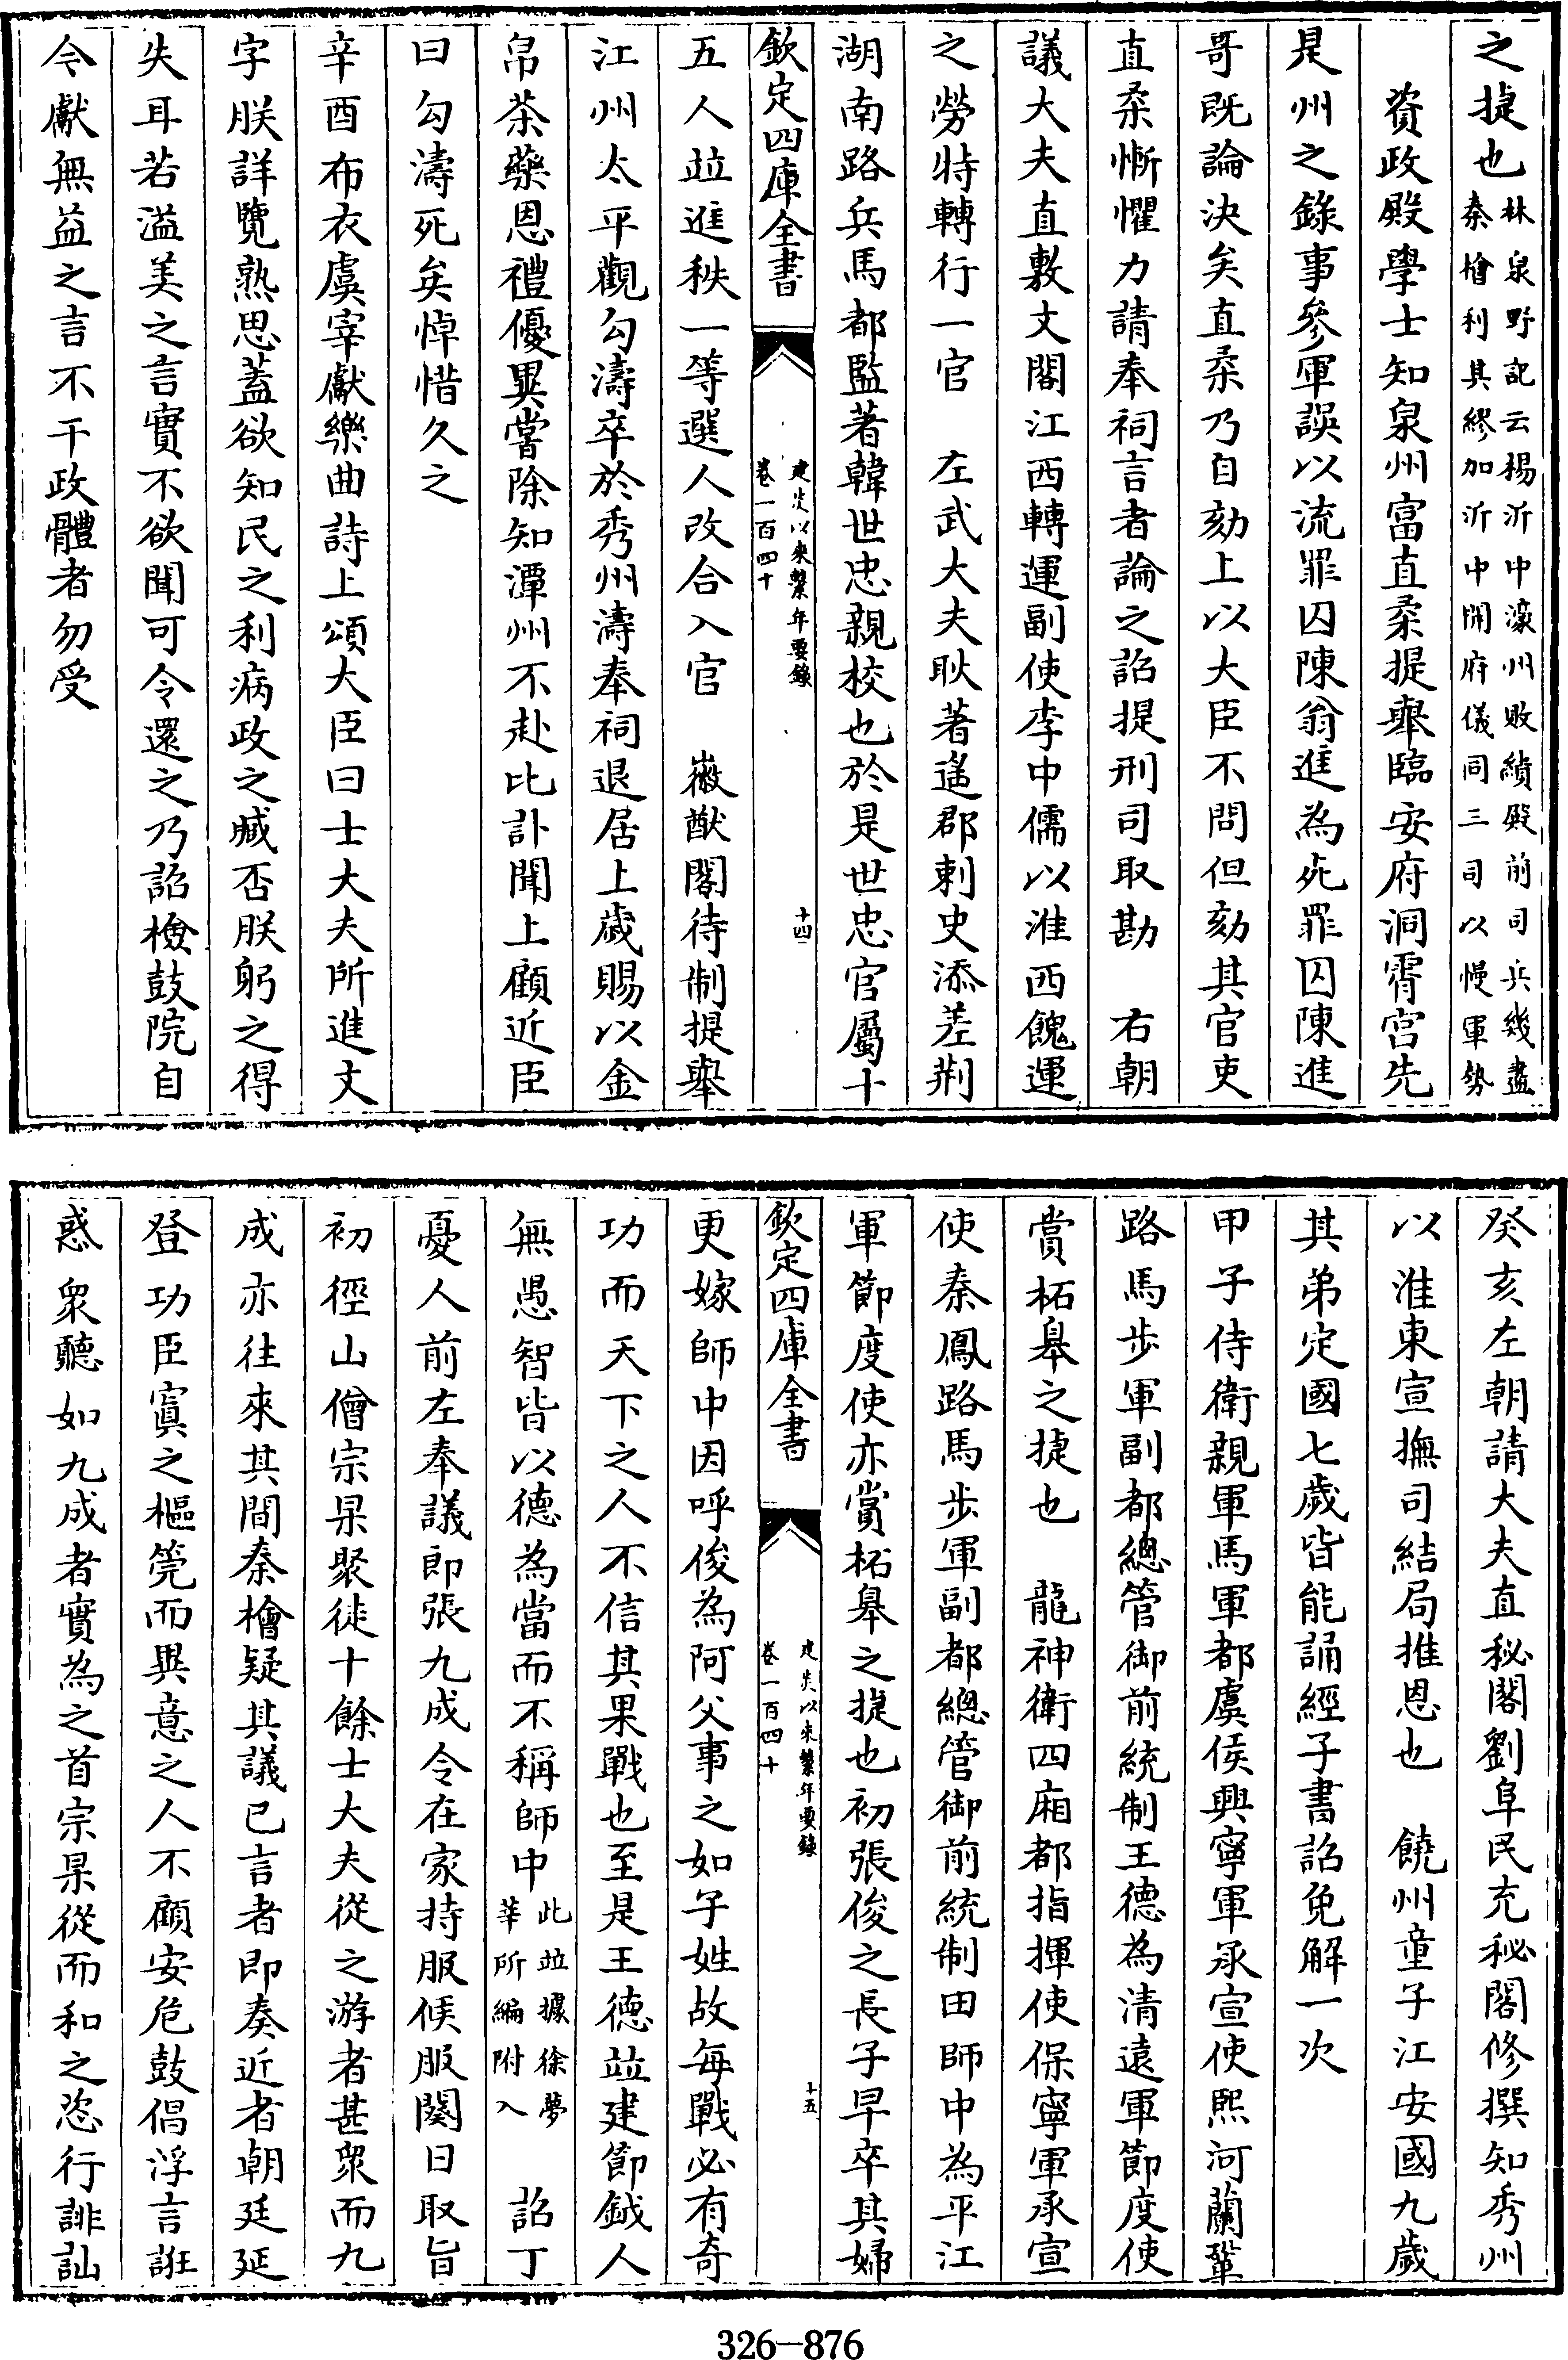 之捷也林泉野記云楊沂中濠州敗績殿前司兵幾盡秦檜利其繆加沂中開府儀同三司以慢軍勢
資政殿學士知泉州富直柔提舉臨安府洞霄宫先
是州之錄事參軍誤以流罪囚陳翁進為死罪囚陳進
哥既論決矣直柔乃自劾上以大臣不問但劾其官吏
直柔慚懼力請奉祠言者論之詔提刑司取勘　右朝
議大夫直敷文閣江西轉運副使李中儒以淮西餽運
之勞特轉行一官　左武大夫耿著遙郡刺史添差荆
湖南路兵馬都監著韓世忠親校也於是世忠官屬十
欽定四庫全書
建炎以來繫年要錄
卷一百四十
十四
五人並進秩一等選人改合入官　徽猷閣待制提舉
江州太平觀勾濤卒於秀州濤奉祠退居上歲賜以金
帛茶藥恩禮優異嘗除知潭州不赴比訃聞上顧近臣
曰勾濤死矣悼惜久之
辛酉布衣虞宰獻樂曲詩上頌大臣曰士大夫所進文
字朕詳覽熟思蓋欲知民之利病政之臧否朕躬之得
失耳若溢美之言實不欲聞可令還之乃詔檢鼓院自
今獻無益之言不干政體者勿受
癸亥左朝請大夫直秘閣劉阜民充秘閣修撰知秀州
以淮東宣撫司結局推恩也　饒州童子江安國九歲
其弟定國七歲皆能誦經子書詔免解一次
甲子侍衛親軍馬軍都虞侯興寧軍承宣使熙河蘭鞏
路馬步軍副都總管御前統制王德為清遠軍節度使
賞柘皋之捷也　龍神衛四廂都指揮使保寧軍承宣
使秦鳳路馬步軍副都總管御前統制田師中為平江
軍節度使亦賞柘皋之捷也初張俊之長子早卒其婦
欽定四庫全書
建炎以來繫年要錄
卷一百四十
十五
更嫁師中因呼俊為阿父事之如子姓故每戰必有奇
功而天下之人不信其果戰也至是王德並建節鉞人
無愚智皆以德為當而不稱師中此並據徐夢莘所編附入　詔丁
憂人前左奉議郎張九成令在家持服候服闋日取旨
初徑山僧宗杲聚徒十餘士大夫從之游者甚衆而九
成亦往來其間秦檜疑其議已言者即奏近者朝廷延
登功臣寘之樞筦而異意之人不顧安危鼓倡浮言誑
惑衆聽如九成者實為之首宗杲從而和之恣行誹訕
326-876